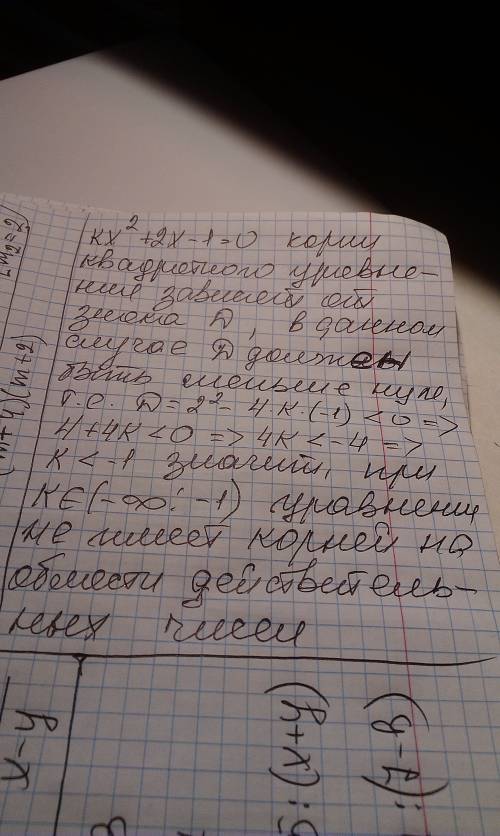 кх² + 2х - 1 = 0 корни
квадратного уравне-
ния зависят от
знака D, в данном
случае D должен
быть меньше нуля,
т.е. D = 2² - 4·к·(-1) < 0 =>
4 + 4к < 0 => 4к < -4 =>
к < -1 значит, при
к∈(-∞; -1) уравнение
не имеет корней на
области действитель-
ных чисел
m₂=2
(m+4)(m+2)
х-у
(х+у)